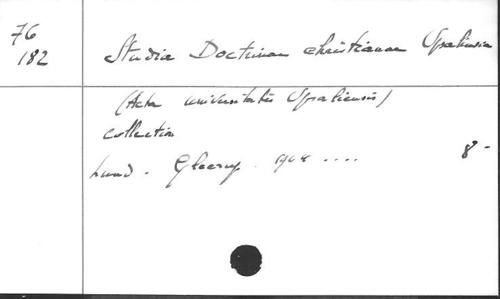 76
182
Studia Doctrinae christianae Upsaliensia
(Acta universitatis Upsaliensis)
collection
Lund . Gleerup . 1968 ....
8-